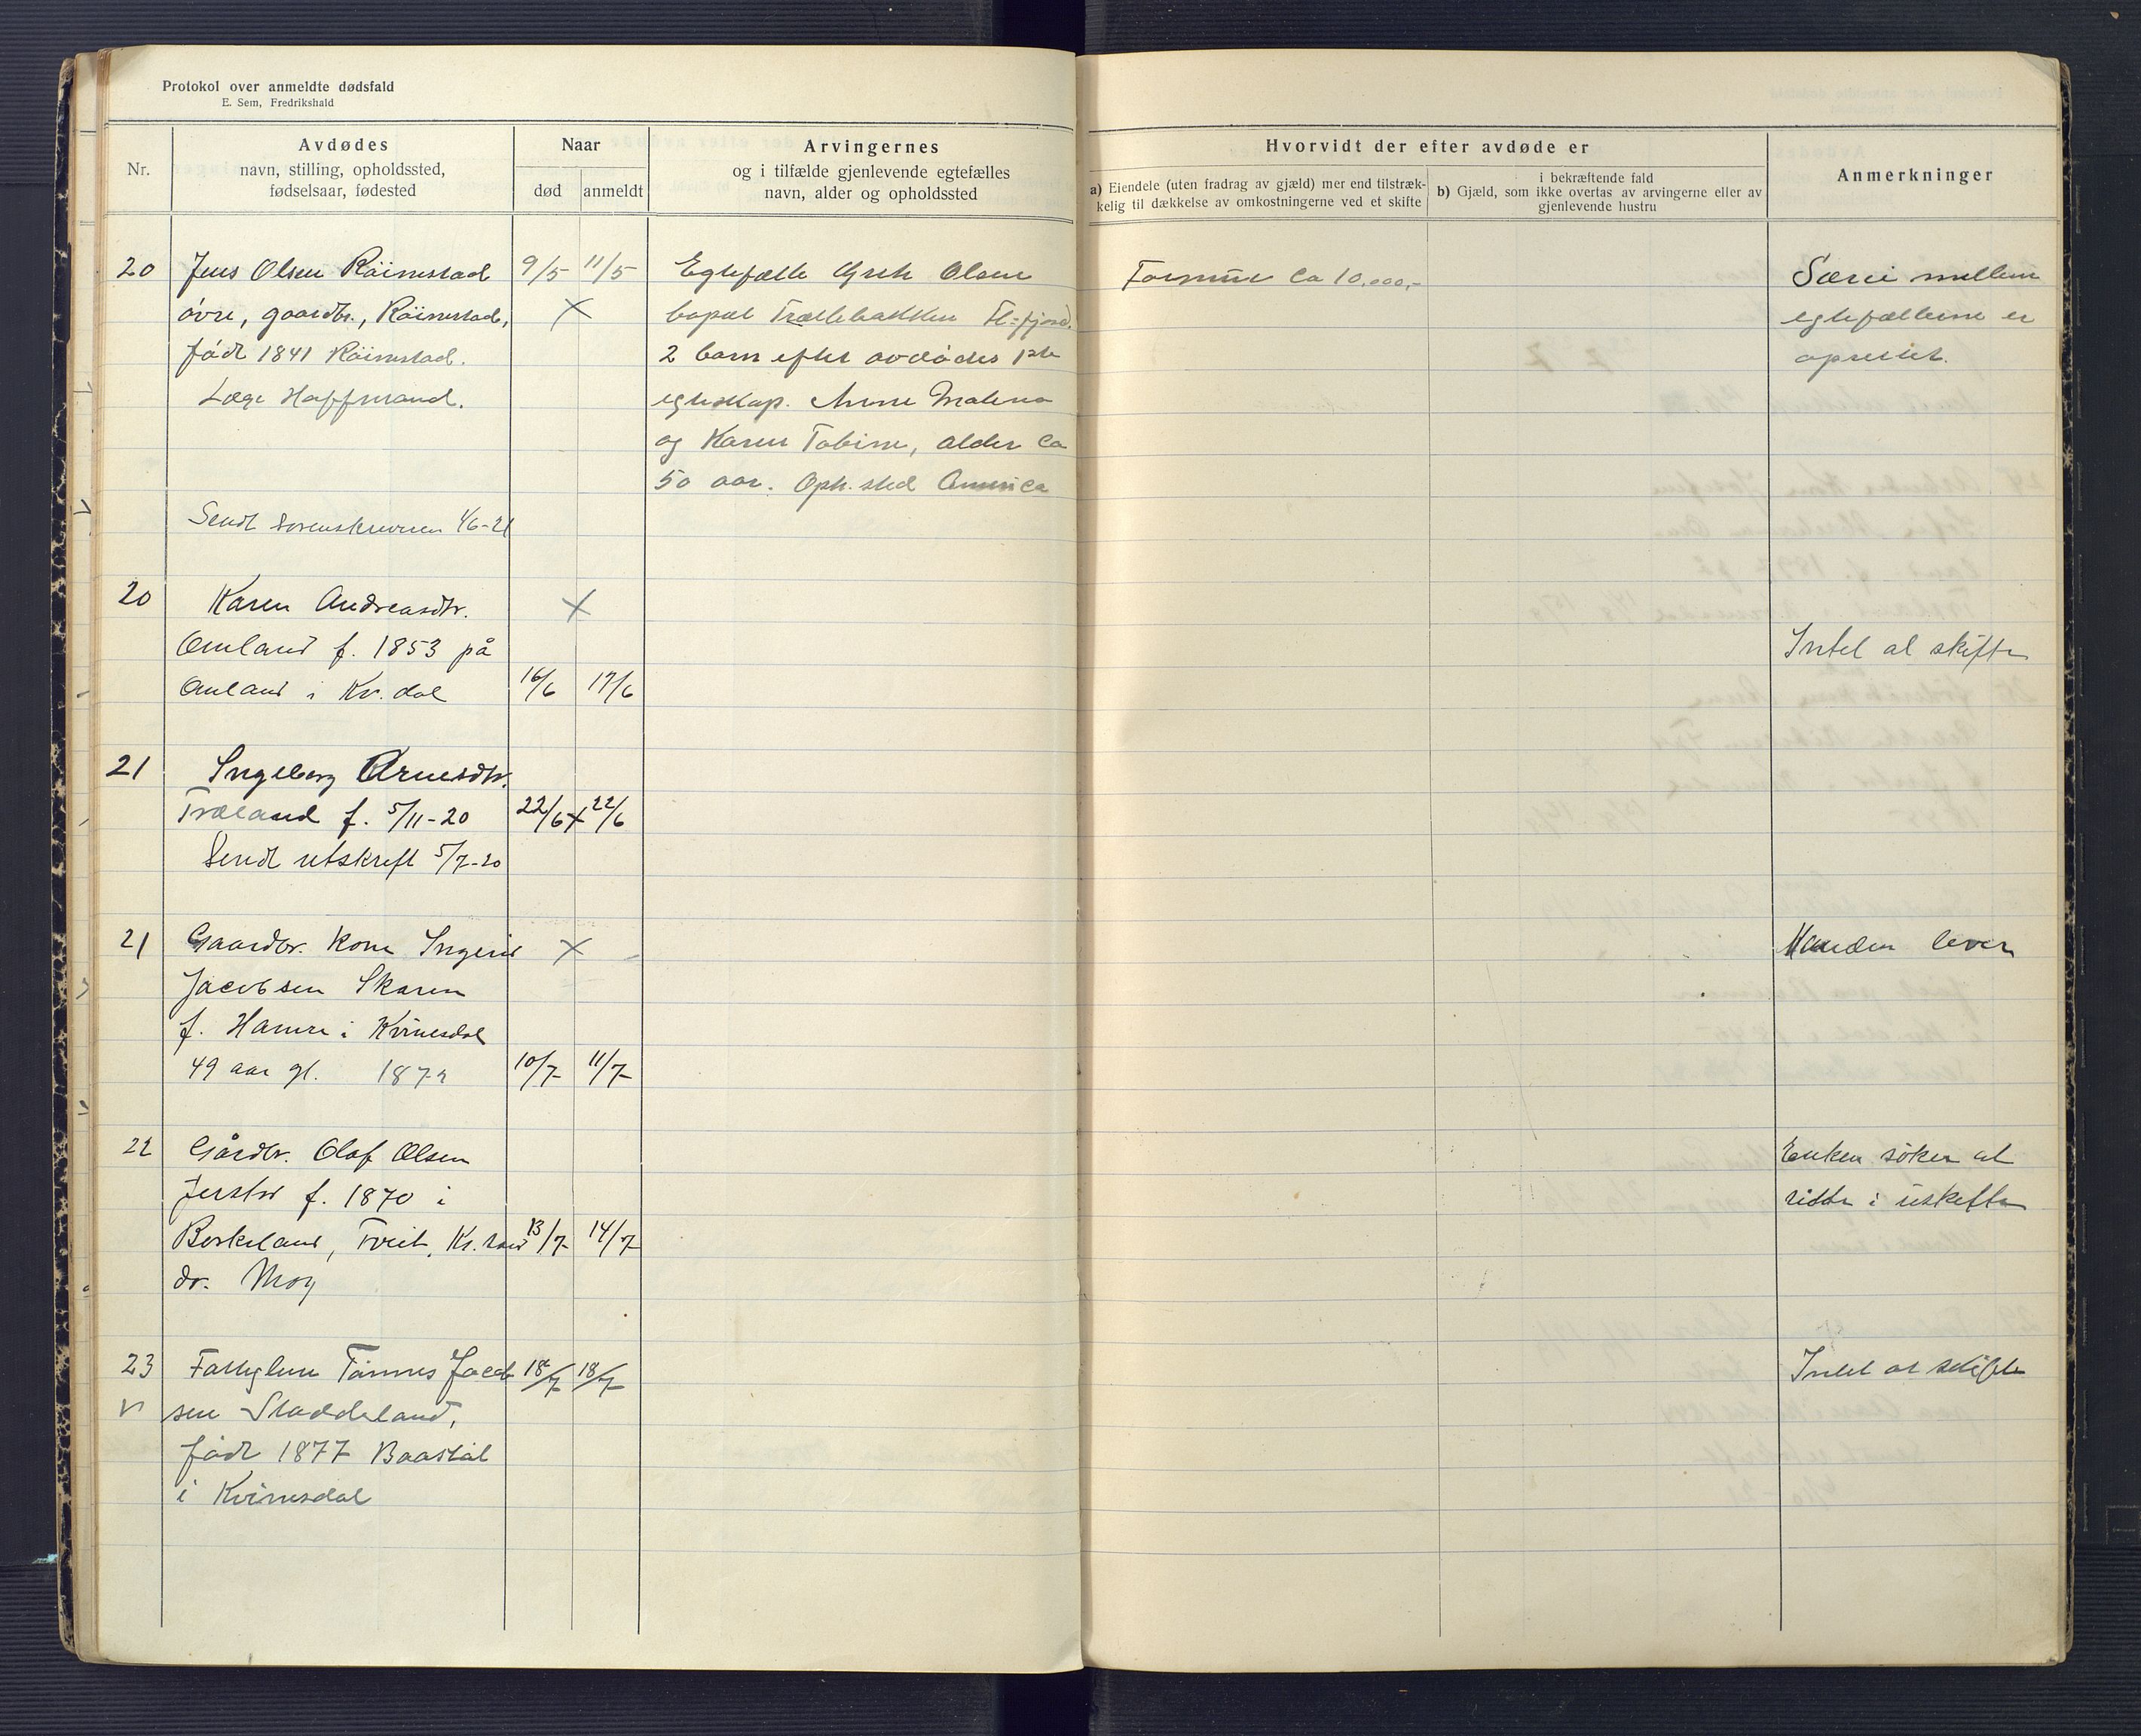 Protokol over anmeldte dødsfald
E. Sem, Fredrikshald
Nr.
Avdødes
navn, stilling, opholdssted,
fødselsaar, fødested
Naar
død
anmeldt
Arvingernes
og i tilfælde gjenlevende egtefælles
navn, alder og opholdssted
Hvorvidt der efter avdøde er
a) Eiendele (uten fradrag av gjæld) mer end tilstræk-
kelig til dækkelse av omkostningerne ved et skifte
i bekræftende fald
b) Gjæld, som ikke overtas av arvingerne eller av
gjenlevende hustru
Anmerkninger
20 Jens Olsen Röinestad 9/5 11/5 Egtefælle Olsen Formue Ca 10.000,- Særei mellem
övre, gaardbr., Röinestad, X bopæl Trællebakken Fl-fjord. egtefællerne er
född 1841 Röinestad. 2 barn efter avdödes 1ste oprettet.
Læge Haffmand. egteskap. Anne Malena
og Karen Tobine, alder ca
50 aar. Oph. sted America
Sendt Sorenskriveren 1/6-21
20 Karen Andreasdtr. X
Omland f. 1853 på Intet at skifte
Omland i Kv.dal 16/6 17/6
21 Ingeborg Arnesdtr.
Træland f. 5/11-20 22/6 X 22/6
Sendt utskrift 5/7-20
21 Gaardbr. kone Ingerid X Manden lever
Jacobsen Skaren
f. Hamre i Kvinesdal
49 aar gl. 1872 10/7 11/7
22 Gårdbr. Olaf Olsen Enken söker at
Jerstad f. 1870 i sidde i uskifte
Birkeland, Tveit, Kr.sand 13/7 14/7
dr. Moy
23 Fattiglem Tönnes Jacob 18/7 18/7 Intet at skifte
v sen Staddeland,
född 1877 Baastöl
i Kvinesdal